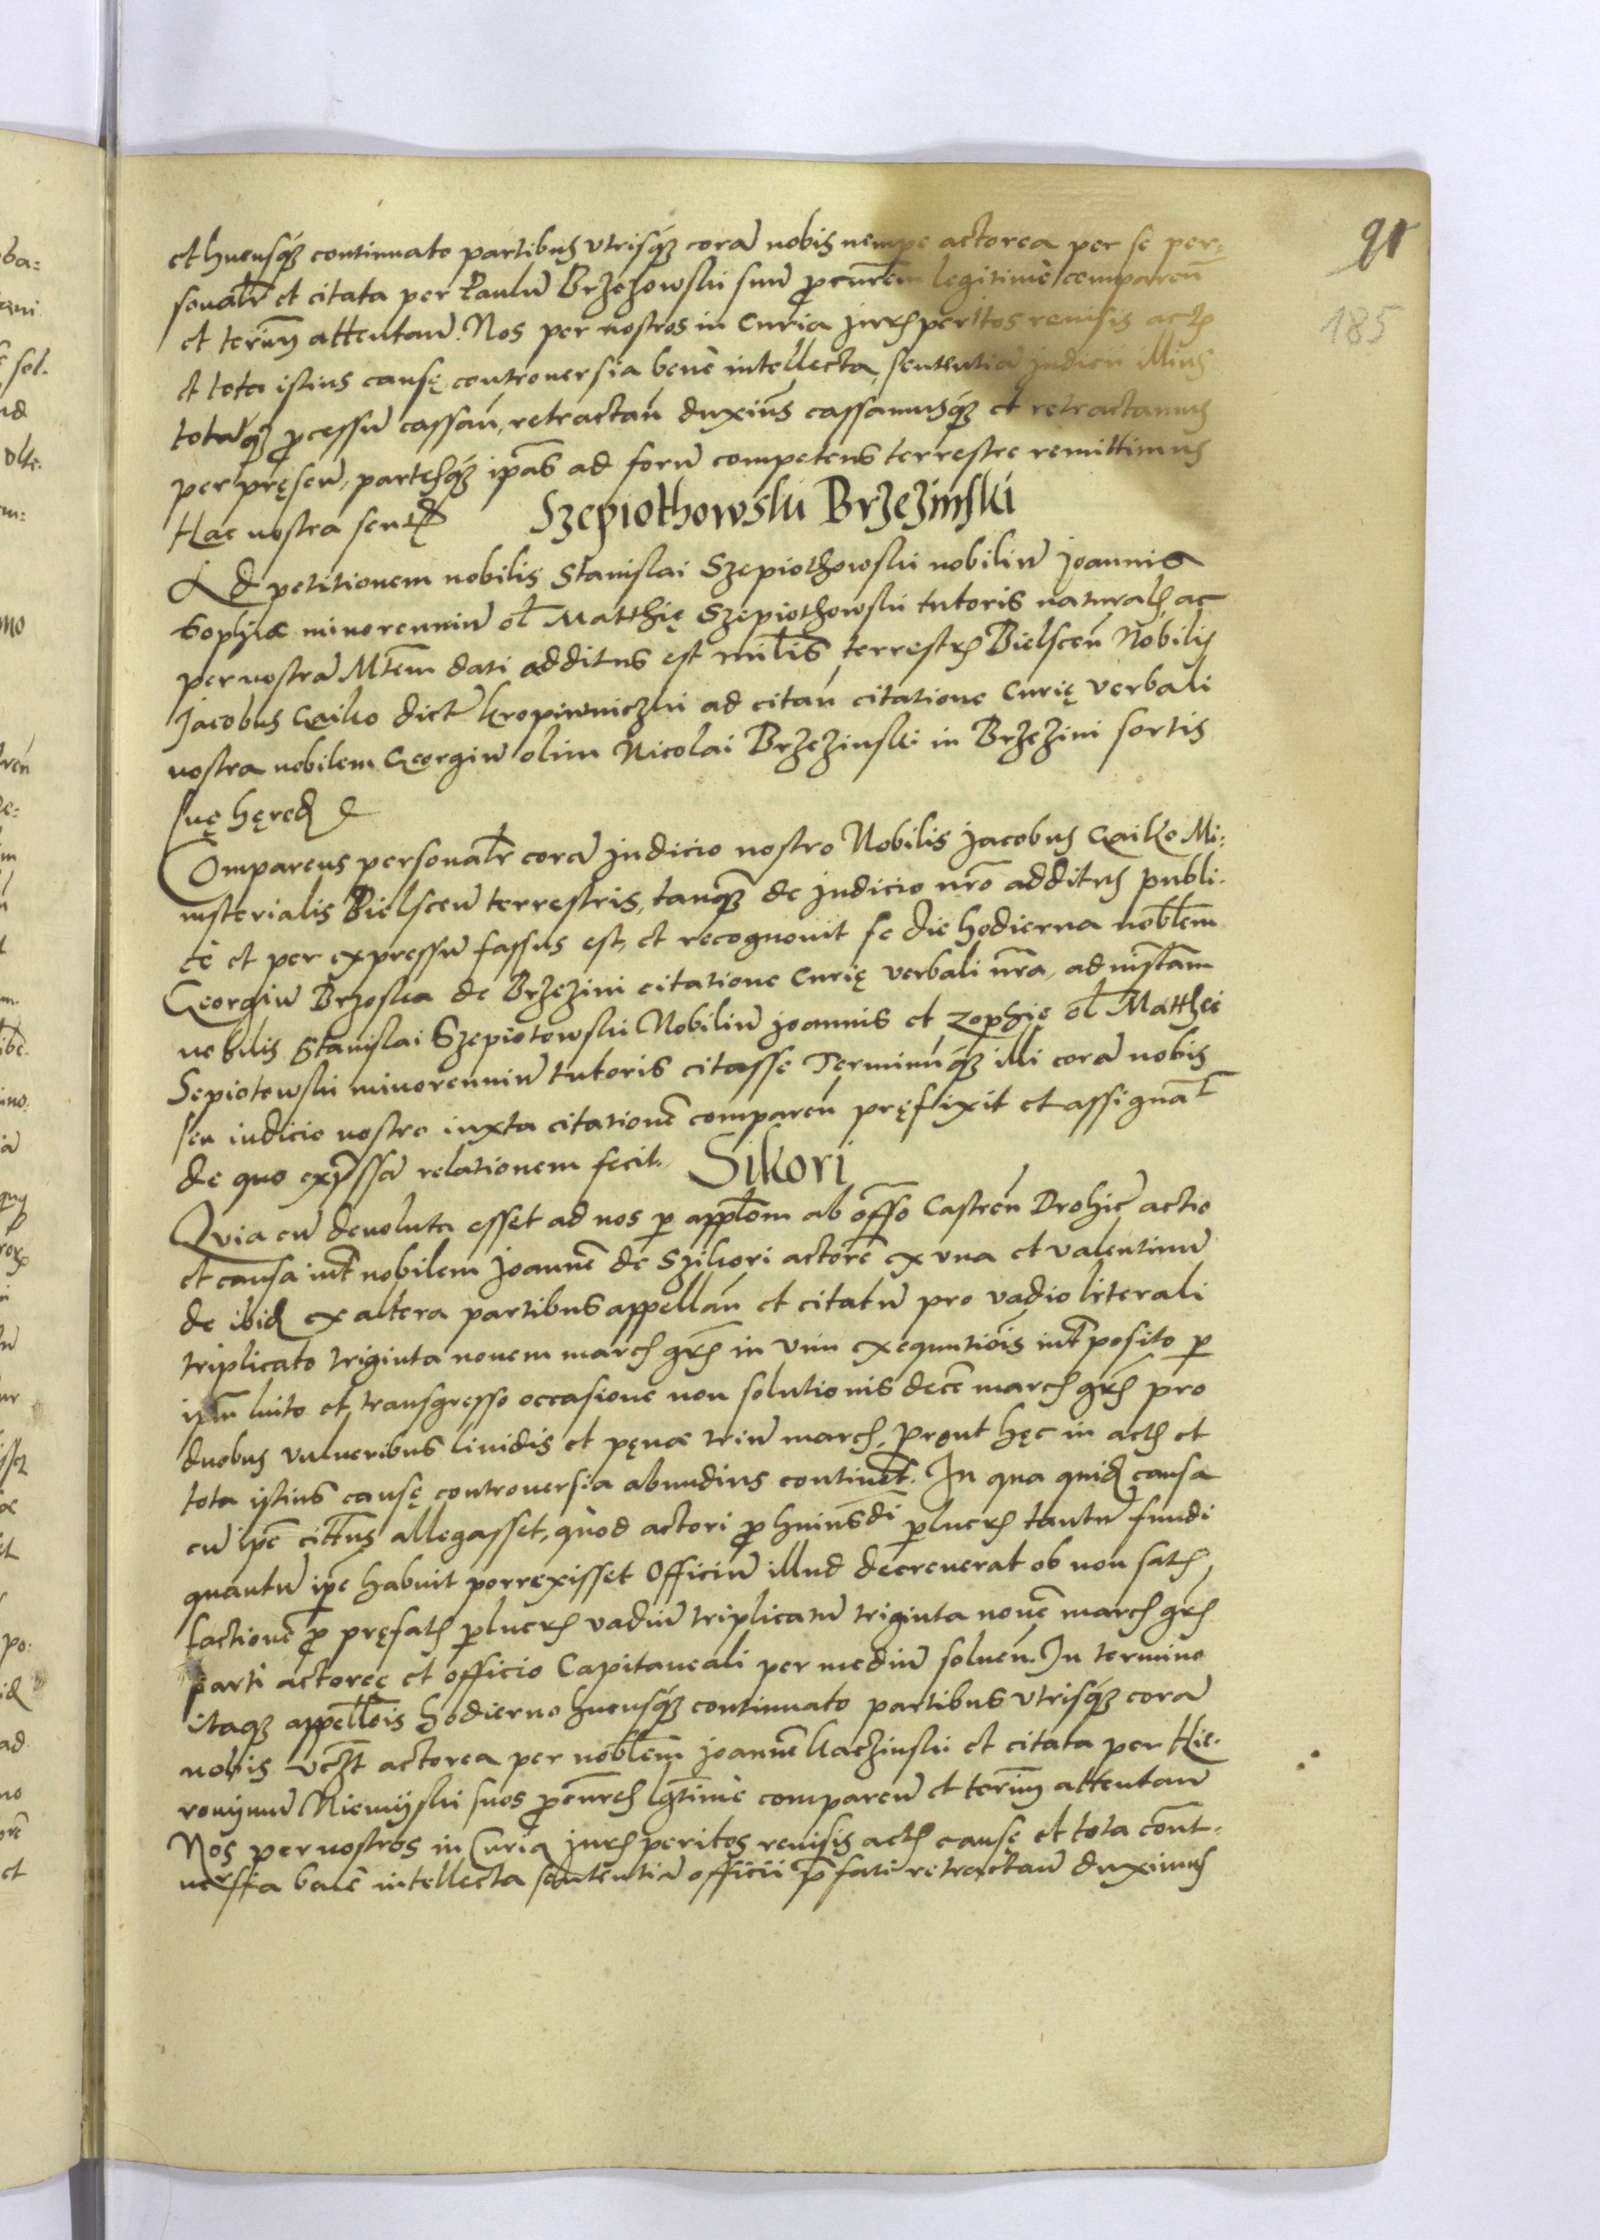 91
185
et hucusq₃ continuato partibus utrisq₃ corā nobis nempe actorea per se per=
sonalr̄ et citata per Paulū Brzezowski suū ꝓcurēm legitime comparen̄
et termī attentan̄. Nos per nostros in Curia Juris peritos revisis actis
et tota istius causę controversia bene intellecta, sententiā Judicii illius
totāq₃ ꝓcessū cassan̄, retractan̄ duximus cassamusq₃ et retractamus
per pręsen̄, partesq₃ ipās ad forū competens terrestre remittimus
Hac nostra sen̄
Szepiothowski Brzezinski
Ad petitionem nobilis Stanislai Szepiothowski nobiliū Joannis
Sophiæ minorenniū ol̄ Matthię Szepiothowski tutoris naturalis ac
per nostrā Mtēm dati additus est mīlis terrestris Bielscen̄ Nobilis
Jacobus Gaiko dict9 Kropiwniczki ad citan̄ citatione Curię verbali
nostra nobilem Georgiū olim Nicolai Brzezinski in Brzezini sortis
suę hęred
Comparens personalr̄ corā Judicio nostro Nobilis Jacobus Gaiko Mi:
nisterialis Bielscen̄ terrestris, tanq̄ de Judicio nr̄o additus publi.
cè et per expressū fassus est, et recognouit se die hodierna noblem
Georgiū Brzoska de Brzezini citatione Curię verbali nr̄a, ad instam
nobilis Stanislai Szepiotowski Nobiliū Joannis et Zophię ol̄ Matthei
Sepiotowski minorenniū tutoris citasse Terminūq₃ illi corā nobis
seu iudicio nostro iuxta citationē comparen̄ pręfixit et assignat
de quo exp̄ssā relationem fecit.
Sikori
Quia cū devoluta esset ad nos p appl̄om ab offō Castren̄ Drohic̄ actio
et causa int̄ nobilem Joannē de Szikori actorē ex una et Valentinū
de ibid ex altera partibus appellan̄ et citatū pro vadio literali
triplicato triginta novem march gr̄s in vim exequntiōis int̄posito p
ipm̄ luito et transgresso occasione non solutionis decē march gr̄s pro
duobus vulneribus lividis et pęnæ triū march, prout hęc in actis et
tota istius causę controversia abundius continet̄. In qua quid causa
cū ipē citt̄us allegasset, quod actori ꝓ huiusdi plucris tantū fundi
quantū ipē habuit porrexisset Officiū illud decreuerat ob non satis
factionē ꝓ pręfatis plucris vadiū triplicatū triginta novē march gr̄s
parti actoreę et officio Capitaneali per mediū soluen̄. In termino
itaq₃ appell̄ois hodierno hucusq₃ continuato partibus utrisq₃ corā
nobis uc₃t actorea per noblēm Joannē Kaczinski et citata per Hie.
ronymū Niemijski suos ꝓcurr̄es lḡtime comparen̄ et termī attentan̄
Nos per nostros in Curia Juris peritos revisis actis causę et tota cont̄=
versia bene intellecta sententiā officii p̄fati retractan̄ duximus